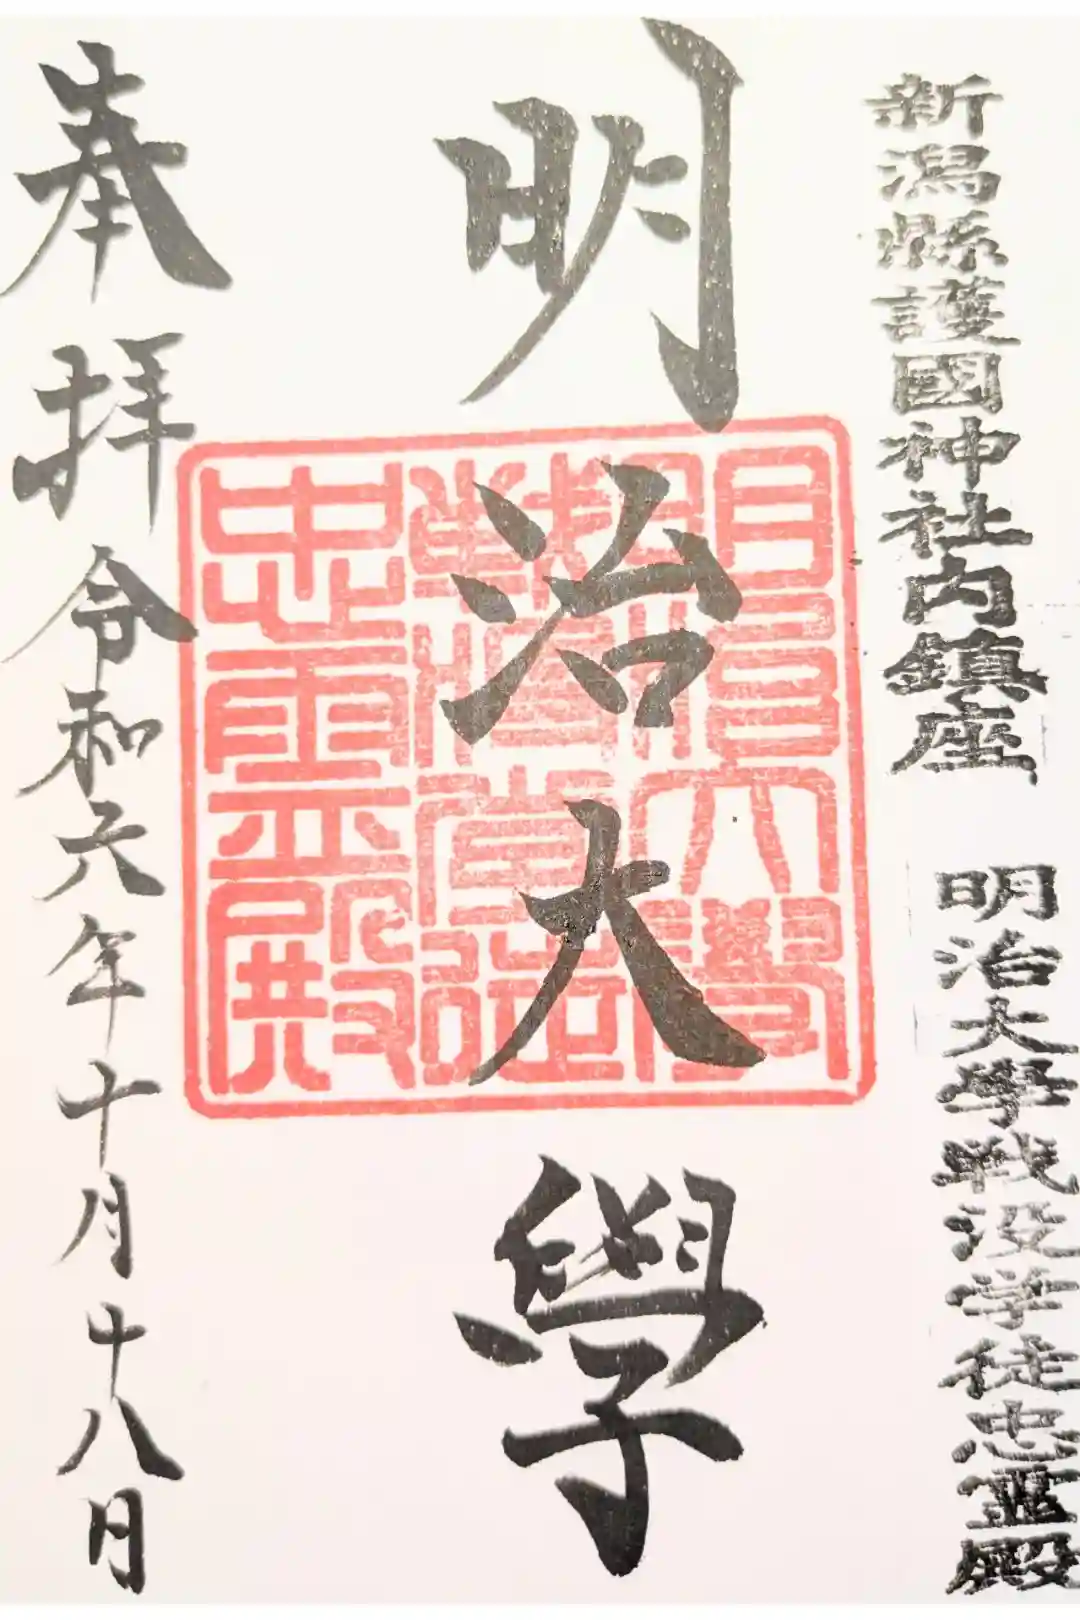 新潟縣護國神社内鎮座　明治大學戦没学徒忠霊殿
明治大學
明治大學
忠霊殿
奉拝 令和六年十月十八日